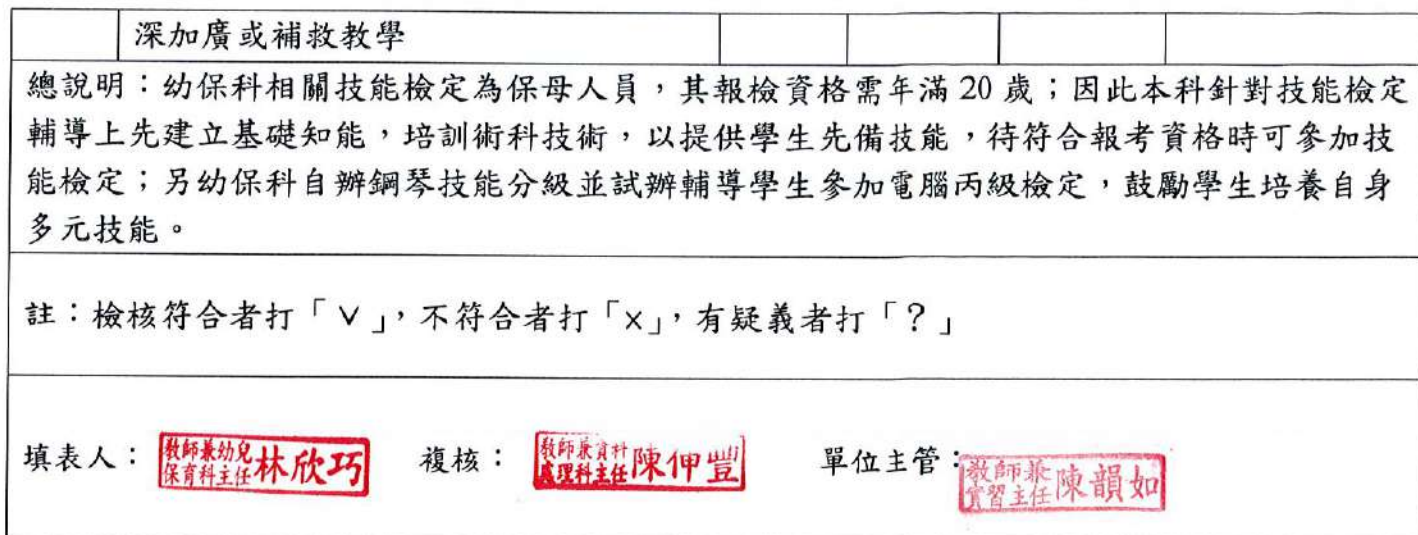 深加廣或補救教學
總說明：幼保科相關技能檢定為保母人員，其報檢資格需年滿 20 歲；因此本科針對技能檢定
輔導上先建立基礎知能，培訓術科技術，以提供學生先備技能，待符合報考資格時可參加技
能檢定；另幼保科自辦鋼琴技能分級並試辦輔導學生參加電腦丙級檢定，鼓勵學生培養自身
多元技能。
註：檢核符合者打「∨」，不符合者打「×」，有疑義者打「？」
填表人： 教師兼幼兒保育科主任 林欣巧 複核： 教師兼資料處理科主任 陳伸豐 單位主管： 教師兼實習主任 陳韻如